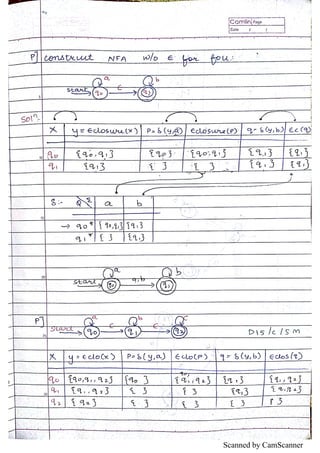 Camlin Page
Date / /
P] construct NFA w/o ε for fou:
start q0 a ε q1 b
Soln.
X y = εclosure(x) P=δ(y,a) εclosure(P) q=δ(y,b) εc(q)
q0 {q0,q1} {q0} {q0,q1} {q1} {q1}
q1 {q1} { } { } {q1} {q1}
δ:- Q Σ a b
→ q0* {q0,q1} {q1}
q1* { } {q1}
start q0 a a,b q1 b
P]
start q0 a ε q1 b ε q2 c
D15/c15m
X y = εclo(x) P=δ(y,a) εclo(P) q=δ(y,b) εclos(q)
q0 {q0,q1,q2} {q0} {q0,q1,q2} {q1} {q1,q2}
q1 {q1,q2} { } { } {q1} {q1,q2}
q2 {q2} { } { } { } { }
Scanned by CamScanner